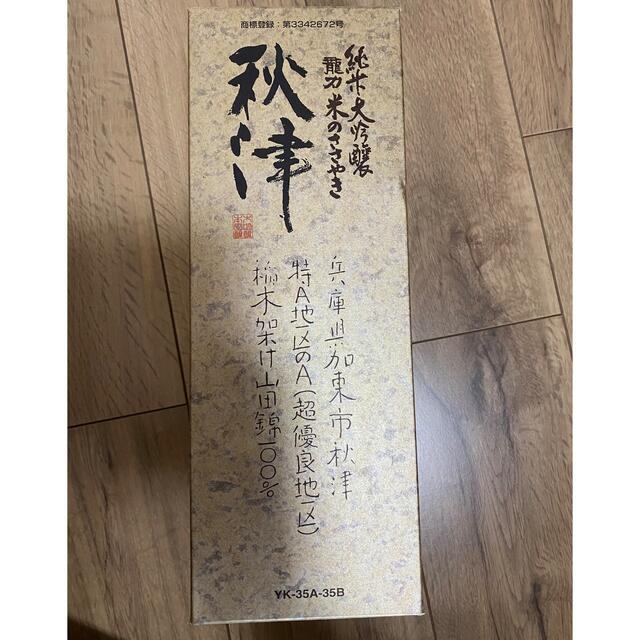 商標登録：第3342672号
純米大吟醸
龍力 米のささやき
秋津
兵庫県加東市秋津
特A地区のA(超優良地区)
稲木架け山田錦一〇〇%
YK-35A-35B